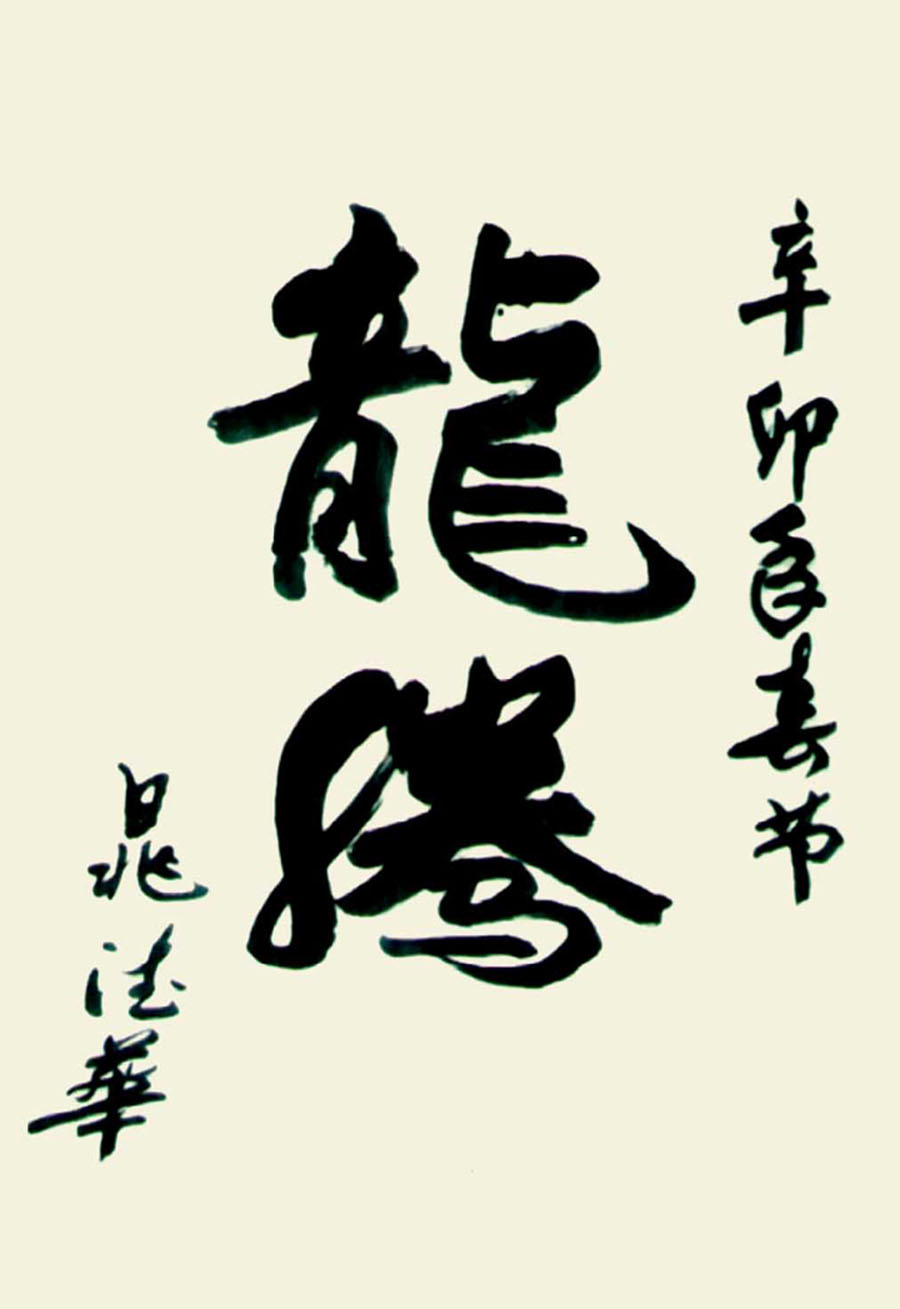 辛卯年春节
龍騰
晁德華